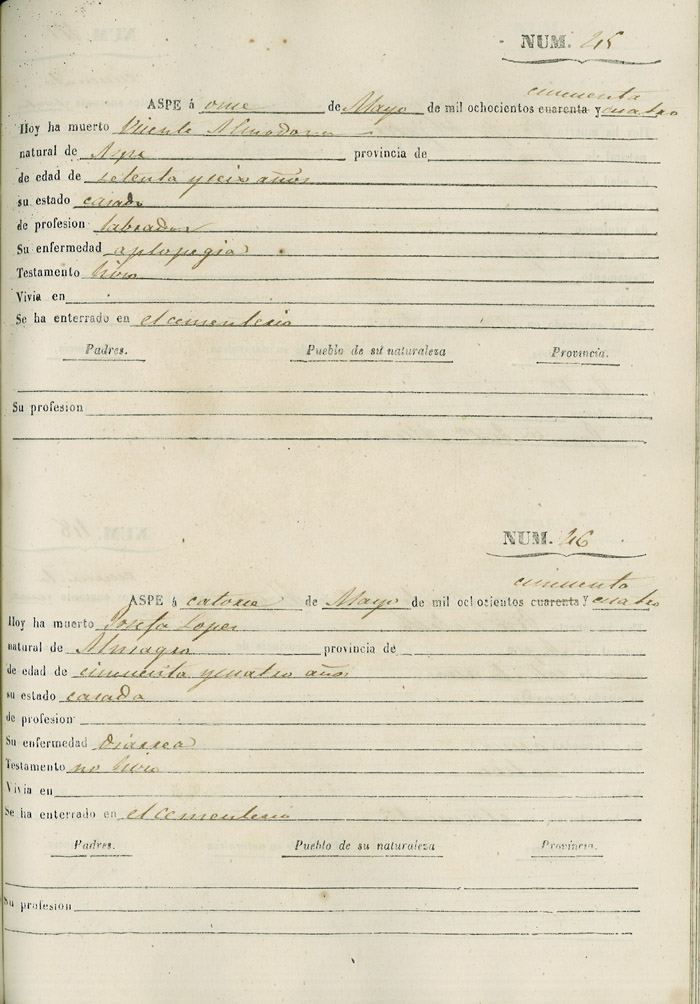 NUM. 45
cincuenta
ASPE á once de Mayo de mil ochocientos cuarenta y cuatro
Hoy ha muerto Vicente Almodovar
natural de Aspe provincia de
de edad de setenta y seix años
su estado casado
de profesion labrador
Su enfermedad aplopegia
Testamento hiso
Vivia en
Se ha enterrado en el cementerio
Padres. Pueblo de su naturaleza Provincia.
Su profesion
NUM. 46
cincuenta
ASPE á catorce de Mayo de mil ochocientos cuarenta y cuatro
Hoy ha muerto Josefa Lopez
natural de Almagro provincia de
de edad de cincuenta y cuatro años
su estado casada
de profesion
Su enfermedad diarrea
Testamento no hiso
Vivia en
Se ha enterrado en el cementerio
Padres. Pueblo de su naturaleza Provincia.
Su profesion